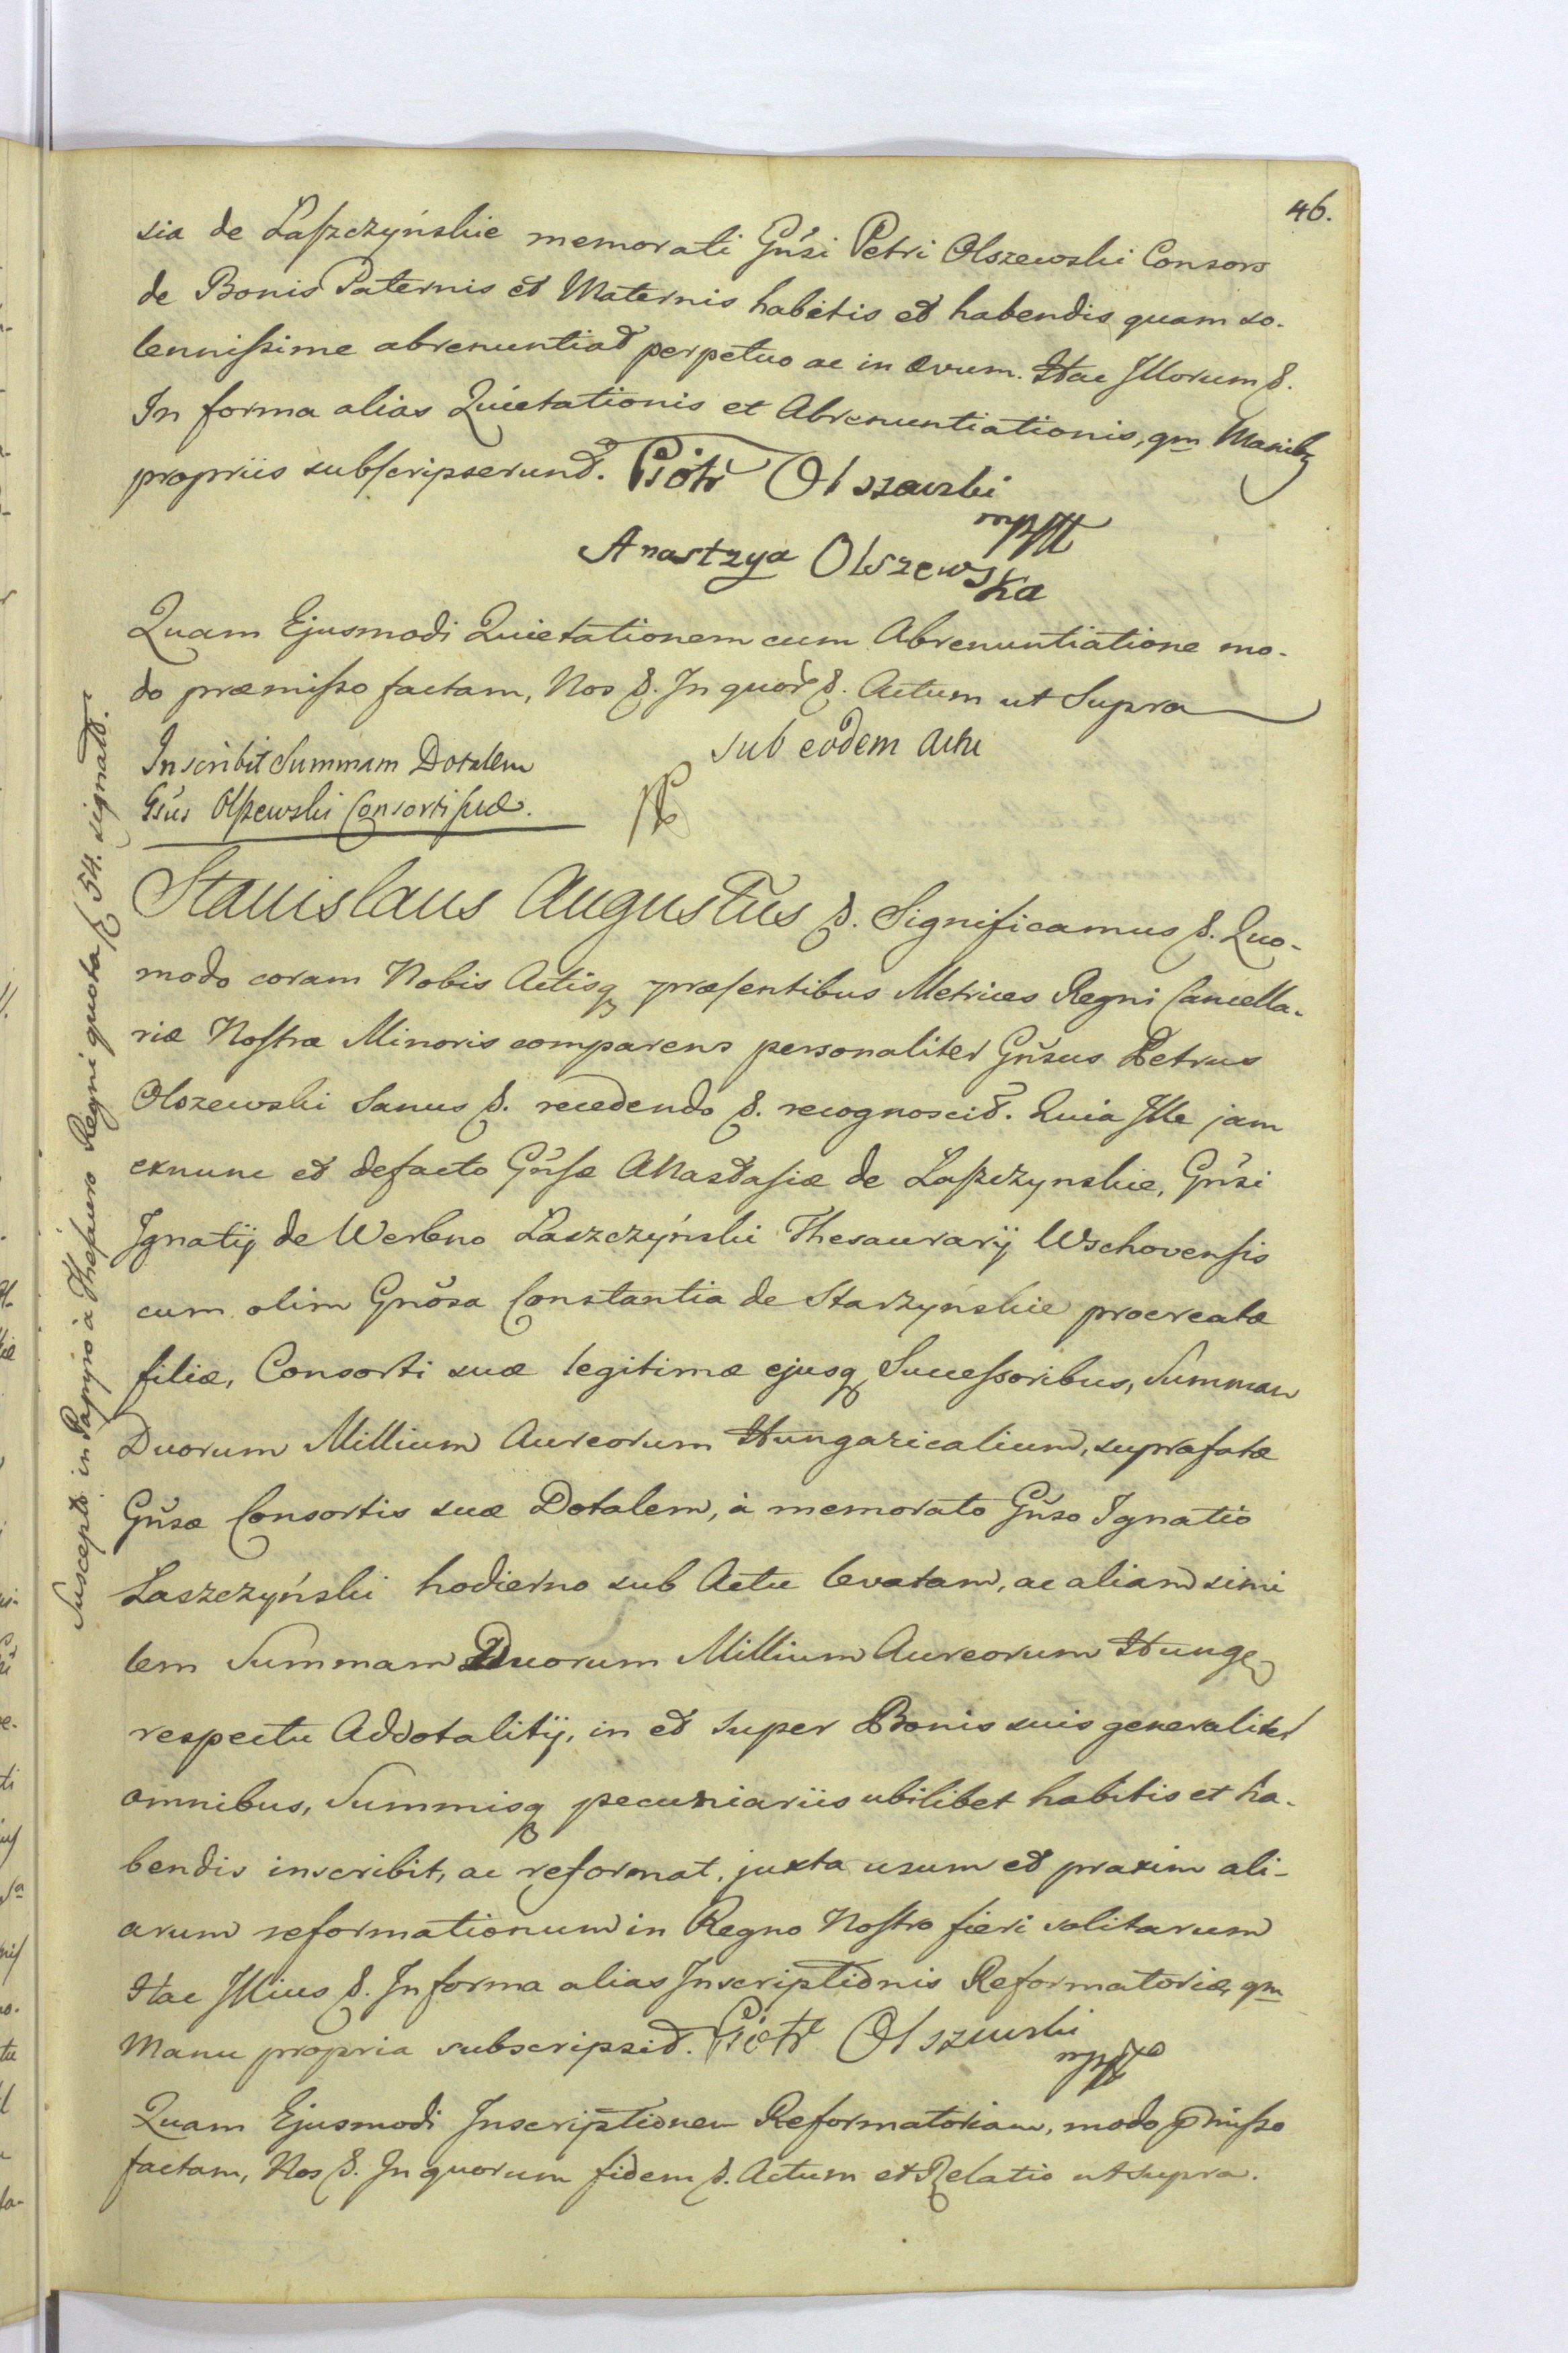 46.
sia de Laszczyńskie memorati Gnsi Petri Olszewski Consors
de Bonis Paternis et Maternis habitis et habendis quam so-
lennissime abrenuntiat perpetuo ac in ævum. Hac Illorum &.
In forma alias Quietationis et Abrenuntiationis, qm Manibq
propriis subscripserunt. Piotr Olszewski
mpp
Anastzya Olszewska
Quam Ejusmodi Quietationem cum Abrenuntiatione mo-
do præmisso factam, Nos &. In quor &. Actum ut Supra
sub eodem Actu
Inscribit Summam Dotalem
Gsus Olszewski Consorti suæ.
Stanislaus Augustus &. Significamus &. Quo-
modo coram Nobis Actisq præsentibus Metrices Regni Cancella-
riæ Nostræ Minoris comparens personaliter Gnsus Petrus
Olszewski Sanus &. recedendo &. recognoscit. Quia Ille jam
exnunc et defacto Gnsæ Anastasiæ de Laszczynskie, Gnsi
Ignatij de Werbno Laszczyński Thesaurarij Wschovensis
cum olim Gnosa Constantia de Starzyńskie procreatæ
filiæ, Consorti suæ legitimæ ejusq Successoribus, Summam
Duorum Millium Aureorum Hungaricalium, suprafatæ
Gnsæ Consortis suæ Dotalem, à memorato Gnso Ignatio
Laszczyński hodierno sub Actu levatam, ac aliam simi
lem Summam Duorum Millium Aureorum Hung
respectu Addotalitij, in et super Bonis suis generaliter
omnibus, Summisq pecuniariis ubilibet habitis et ha-
bendis inscribit, ac reformat, juxta usum et praxim ali-
arum reformationum in Regno Nostro fieri solitarum
Hac Illius &. In forma alias Inscriptionis Reformatoriæ, qm
Manu propria subscripsit. Piotr Olszewski
mpp
Quam Ejusmodi Inscriptionem Reformatoriam, modo pmisso
factam, Nos &. In quorum fidem &. Actum et Relatio ut supra.
Suscepto in Papyro à Thesauro Regni quota 54. signat.